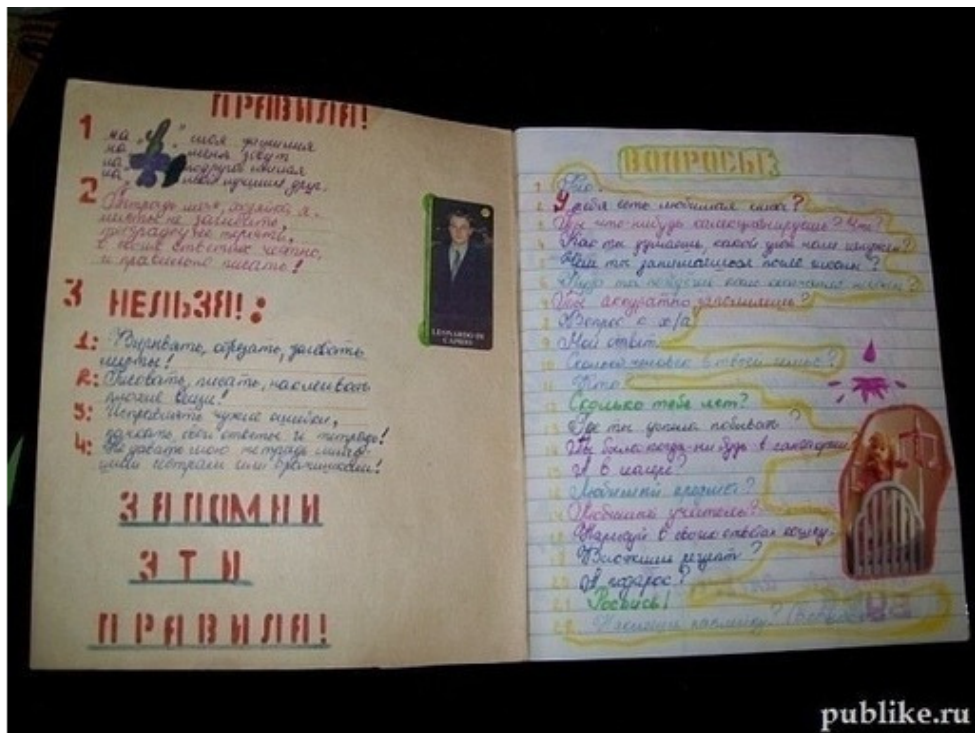 ПРАВИЛА!
1 на " " моя фамилия
на меня зовут
на подруга
на мой лучший друг.
2 Тетрадь моя, хозяйка я.
листы не загибать,
тетрадку не терять,
в своих ответах честно,
и правильно писать!
3 НЕЛЬЗЯ!:
1: Вырывать, обрезать, загибать
листы!
2: Рисовать, писать, наклеивать
плохие вещи!
3: Исправлять чужие ошибки,
свои ответы и тетрадь!
4: Не давать мою тетрадь
сестрам или братишкам!
ЗАПОМНИ
ЭТИ
ПРАВИЛА!
LEONARDO DI
CAPRIO
ВОПРОСЫ:
1.
2. У тебя есть любимая
3. Ты что-нибудь коллекционируешь? Что?
4. Как ты думаешь, какой урок
5. Чем ты занимаешься после школы?
6. Куда ты пойдёшь после окончания школы?
7. Ты аккуратно заполняешь?
8. Вопрос о х/а
9. Мой ответ.
10. Сколько человек в твоей семье?
11. Кто?
12. Сколько тебе лет?
13. Где ты успела побывать?
14. Ты была когда-нибудь в санатории?
15. И в лагере?
16. Любимый предмет?
17. Любимый учитель?
18. Нарисуй в своих ответах кошку.
19. рецепт?
20. А подарок?
21. Роспись!
22. наклейку?
publike.ru